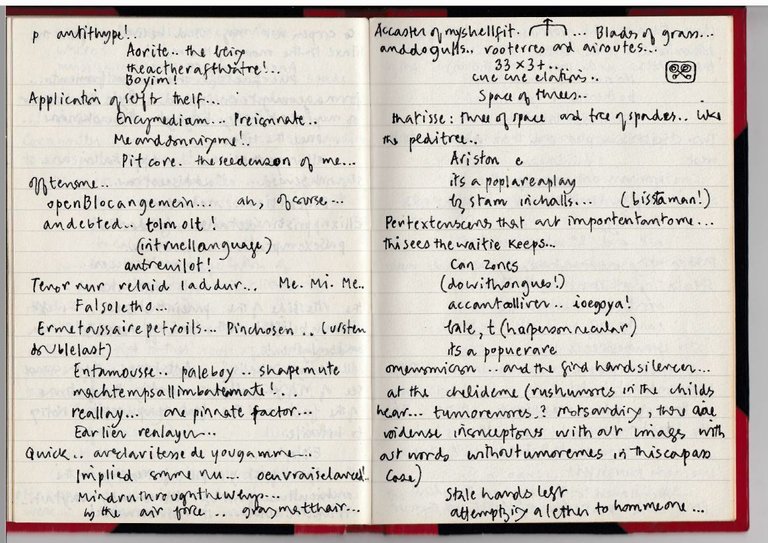 p antithype!...
Aorite.. the being
theactheraftheatre!...
Boyim!
Application of self to thelf...
Encymediam... Preisonnate..
Me anddonnizyme!..
Pit core. the seedemeon of me...
off tensme..
openBlocangemein.. ah, of course...
andebted.. tolmolt!
(intruellanguage)
autrevilot!
Tenor nur relaid laddur... Me. Mi. Me..
Falsoletho...
Ermetoussaire petroils... Pinchosen..
doublelast)
Entamousse.. paleboy.. shapemute
machtempsallimbatemate!..
reallay... one pinnate factor...
Earlier realayer...
Quick.. de yougamme...
Implied
in the air force.. graymatthair...
Accaster of myshellfit. ... Blades of grass...
anddogulls.. rooterres and airoutes...
33 x 3+....
cue cue elations..
Space of threes..
Matisse: three of space and tree of spades.. like
the peditree..
Ariston e
its a poplareaplay
inchalls... (bisstaman!)
Pertextenscens that art importentantome...
thisees the waitie keeps...
Can Zones
(dowithongues!)
accantoolliver.. ioegoya!
bale, t (harpersonnecular)
its a popuerare
omensmicron.. and the find handsilencer...
at the chelideme (rushumores in the childs
hear... tumoremores.? notsanding, there are
voidense insnceptores without images with
out words withoutumoremes in thiscapass
case)
Stale hands left
attempting a lether to hommeone...